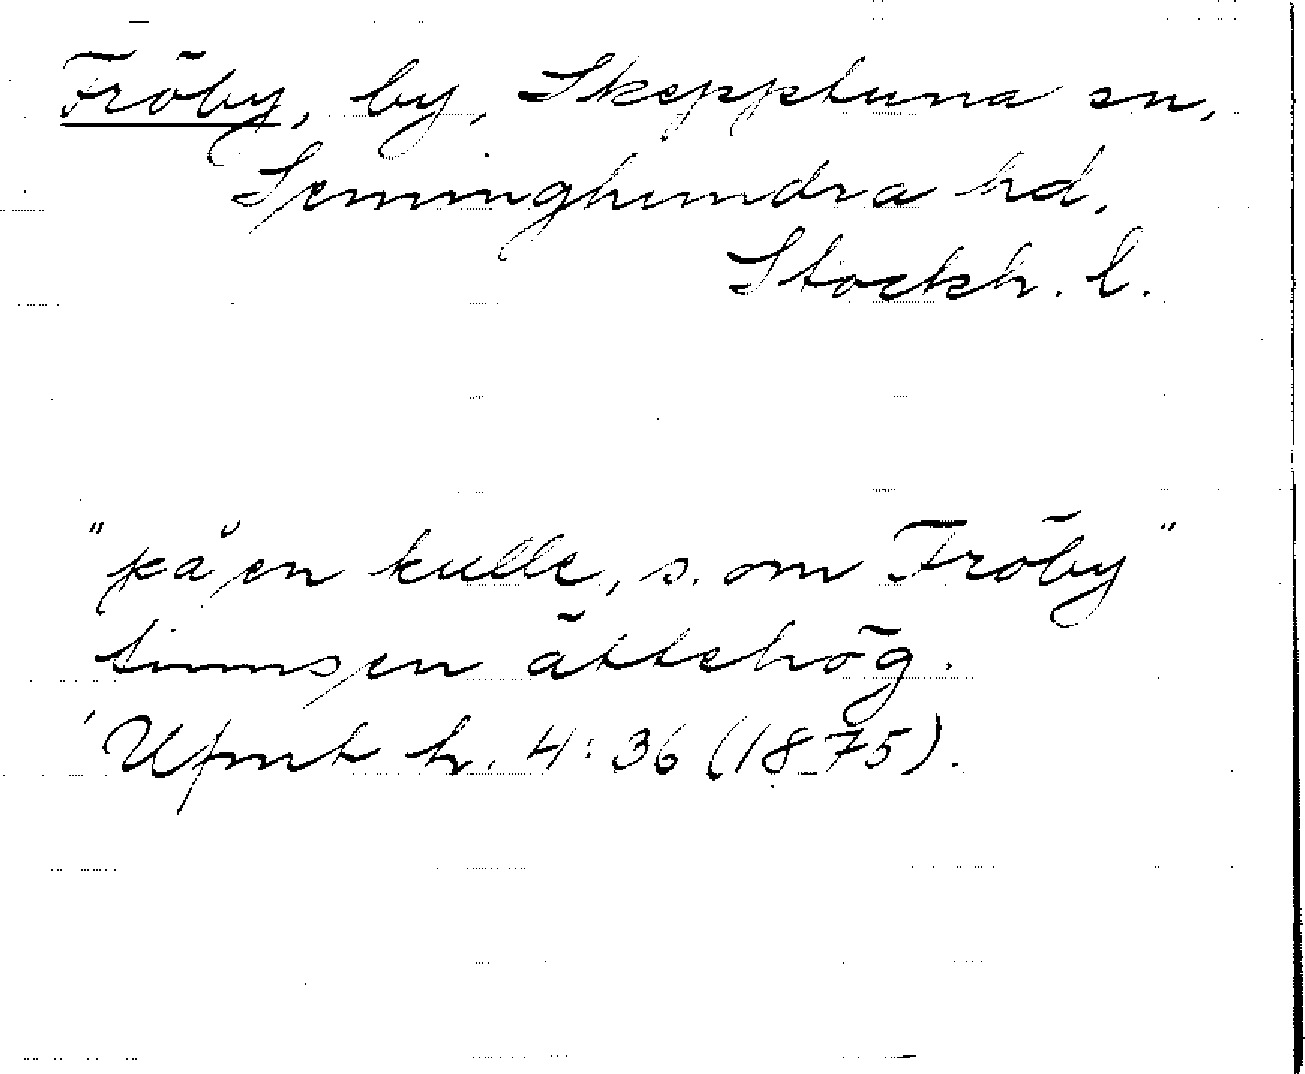 Fröby, by, Skepptuna sn,
Seminghundra hd,
Stockh. l.
"på en kulle, s. om Fröby"
finns en ättehög.
Upmt h. 4:36 (1875).